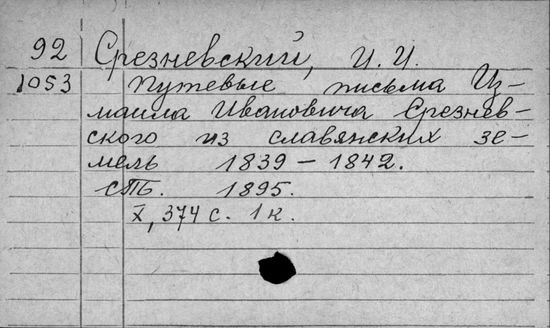 92 Срезневский, И. И.
1053 Путевые письма Из-
маила Ивановича Срезнев-
ского из славянских зе-
мель 1839 – 1842.
СПб. 1895.
X, 374 с. 1 к.